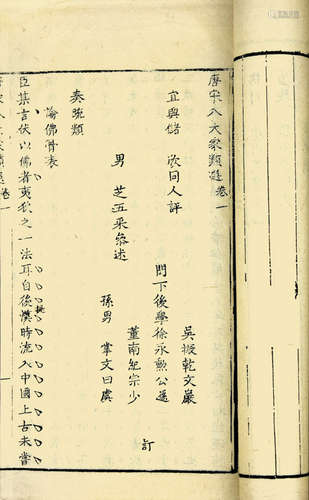 唐宋八大家類選卷一
宜興儲 欣同人評
吳振乾文巖
門下後學徐永勲公遜
董南紀宗少
男 芝五采叅述
孫男 掌文曰虞 訂
奏疏類
論佛骨表
臣某言伏以佛者夷狄之一法耳自後漢時流入中國上古未嘗
卷一